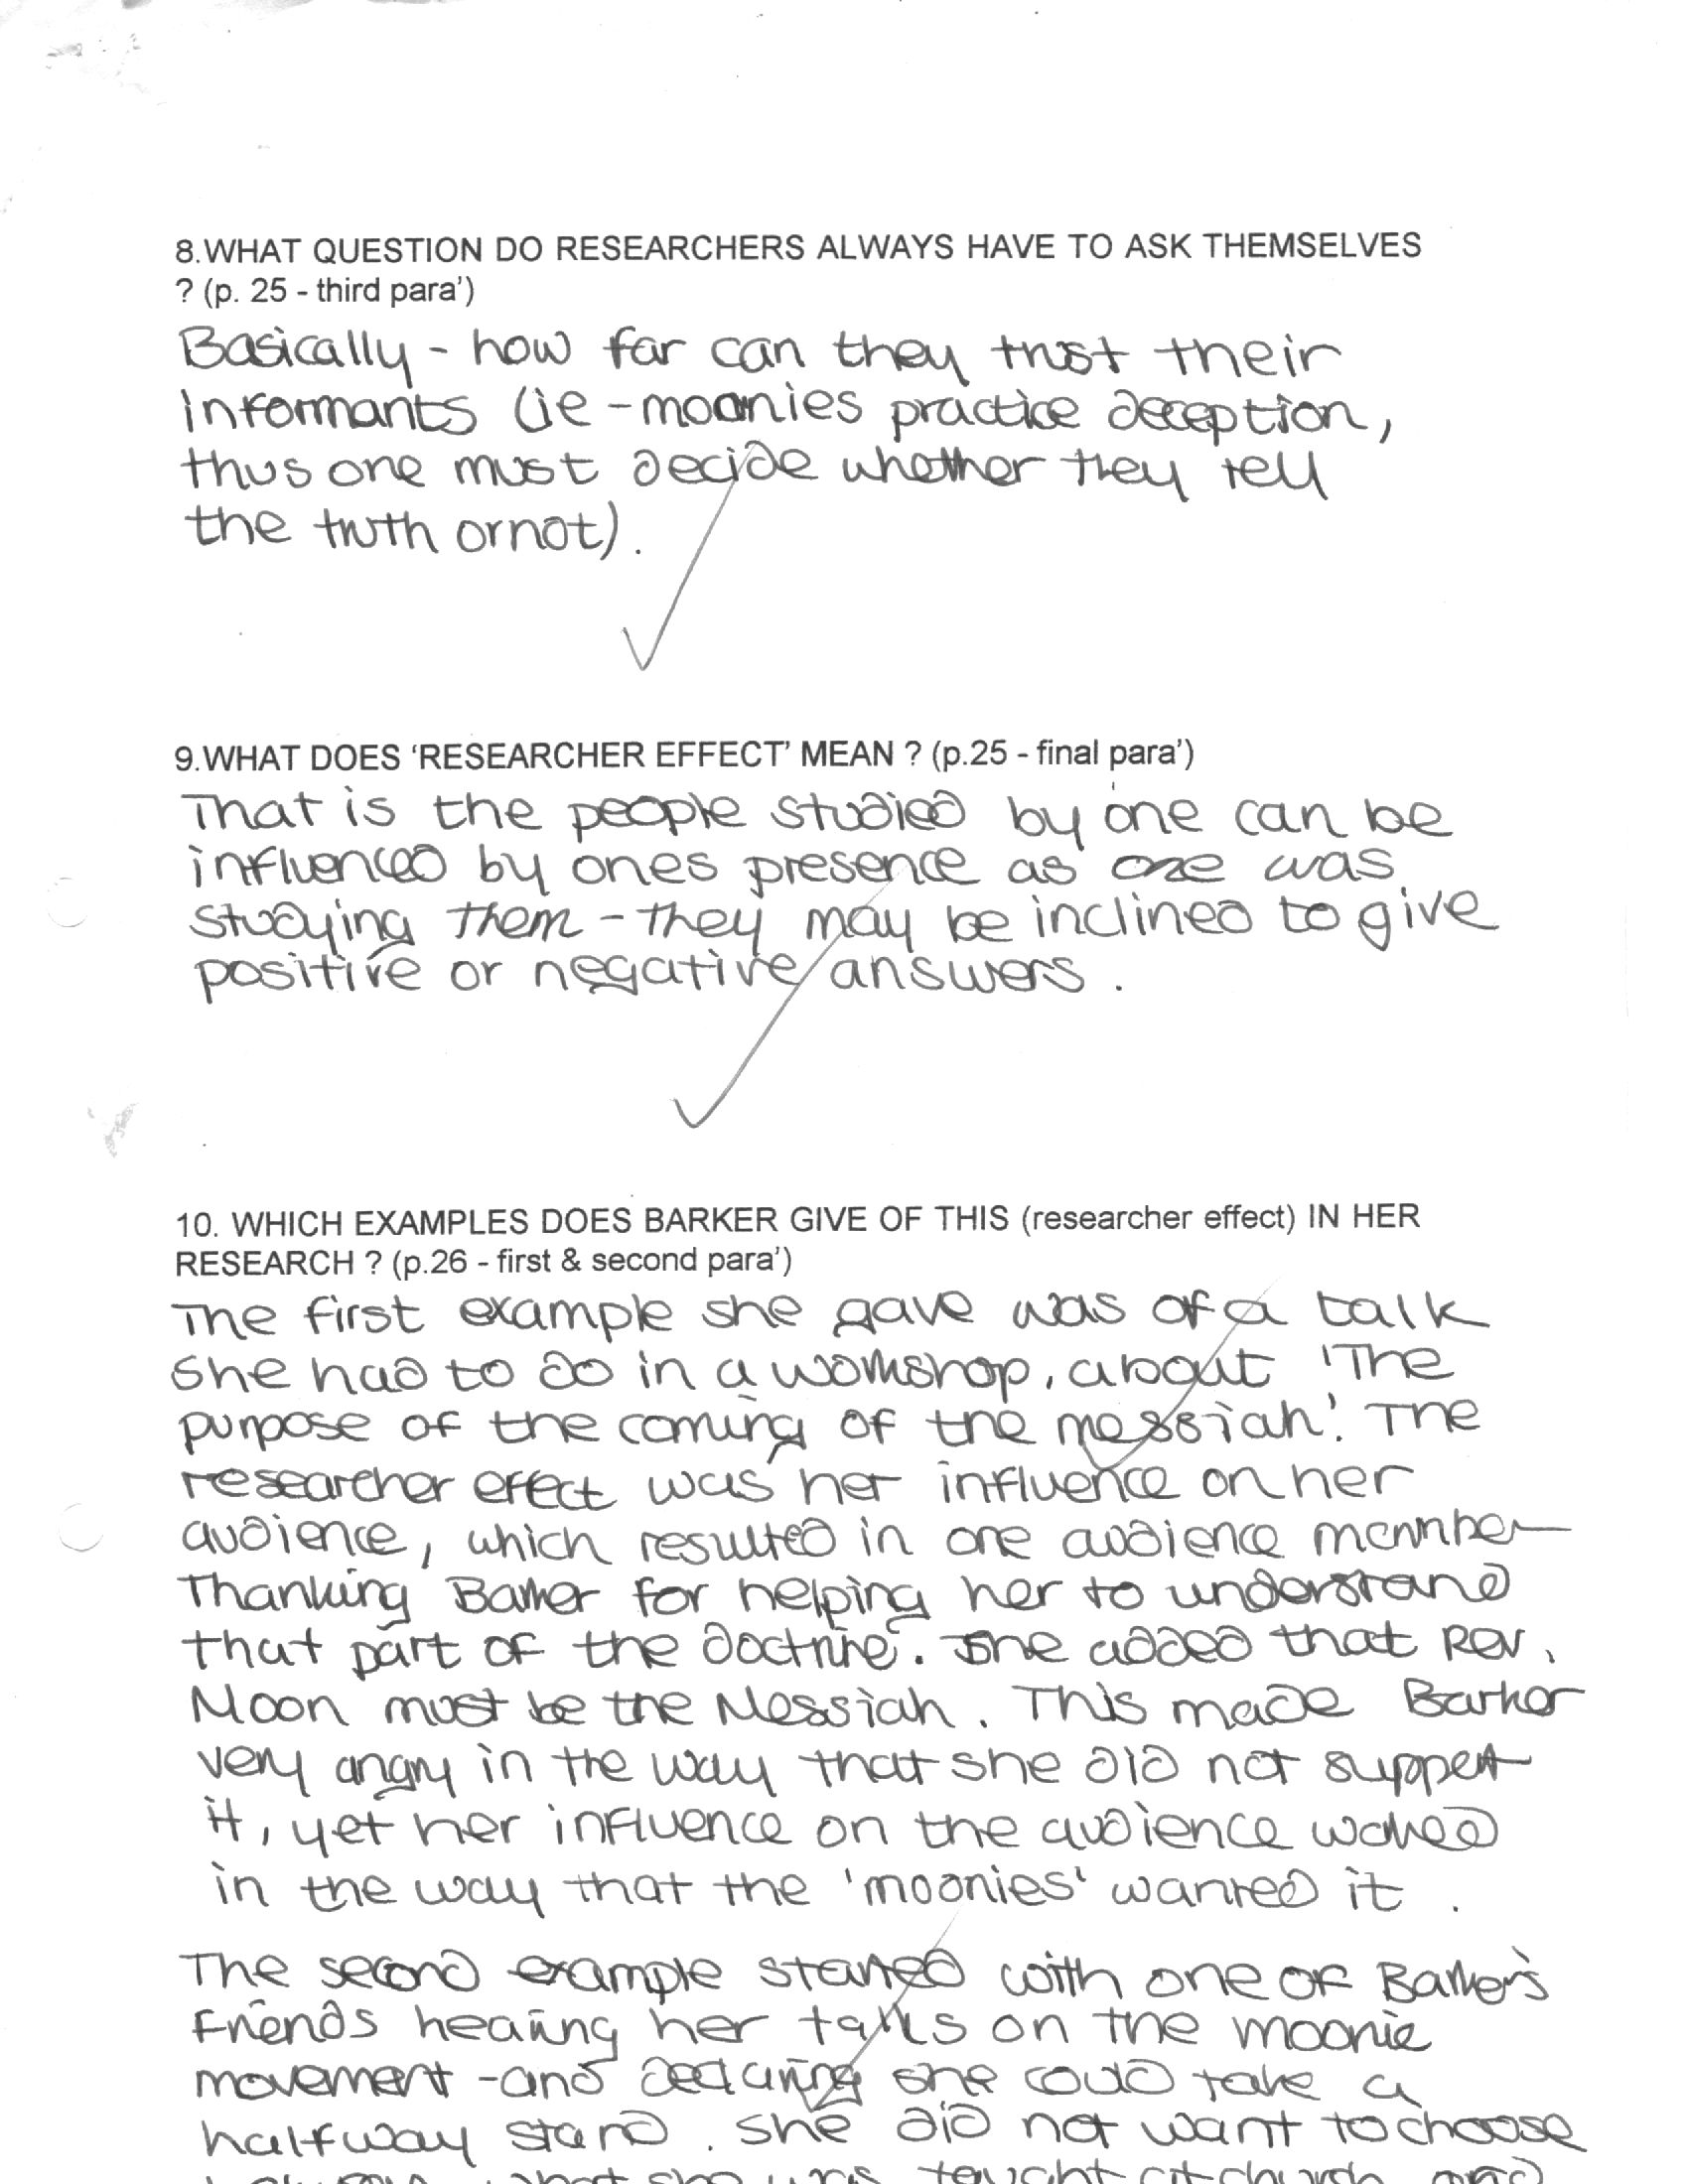 8.WHAT QUESTION DO RESEARCHERS ALWAYS HAVE TO ASK THEMSELVES
? (p. 25 - third para')
Basically - how far can they trust their
informants (ie - moonies practice deception,
thus one must decide whether they tell
the truth or not).
9.WHAT DOES 'RESEARCHER EFFECT' MEAN ? (p.25 - final para')
That is the people studied by one can be
influenced by ones presence as one was
studying them - they may be inclined to give
positive or negative answers.
10. WHICH EXAMPLES DOES BARKER GIVE OF THIS (researcher effect) IN HER
RESEARCH ? (p.26 - first & second para')
The first example she gave was of a talk
she had to do in a workshop, about 'The
purpose of the coming of the messiah'. The
researcher effect was her influence on her
audience, which resulted in one audience member
thanking Barker for helping her to understand
that part of the doctrine. She added that Rev.
Moon must be the Messiah. This made Barker
very angry in the way that she did not support
it, yet her influence on the audience worked
in the way that the 'moonies' wanted it.
The second example started with one of Barker's
friends hearing her talks on the moonie
movement - and declaring she could take a
halfway stand. She did not want to choose
what she was taught at church and